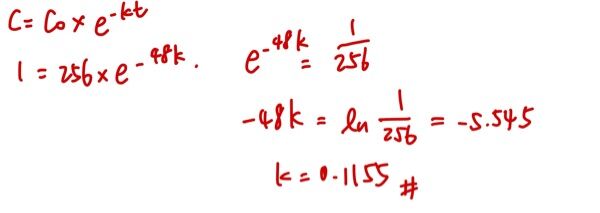 C = Co × e^-kt
1 = 256 × e^-48k.
e^-48k = 1/256
-48k = ln 1/256 = -5.545
k = 0.1155 #